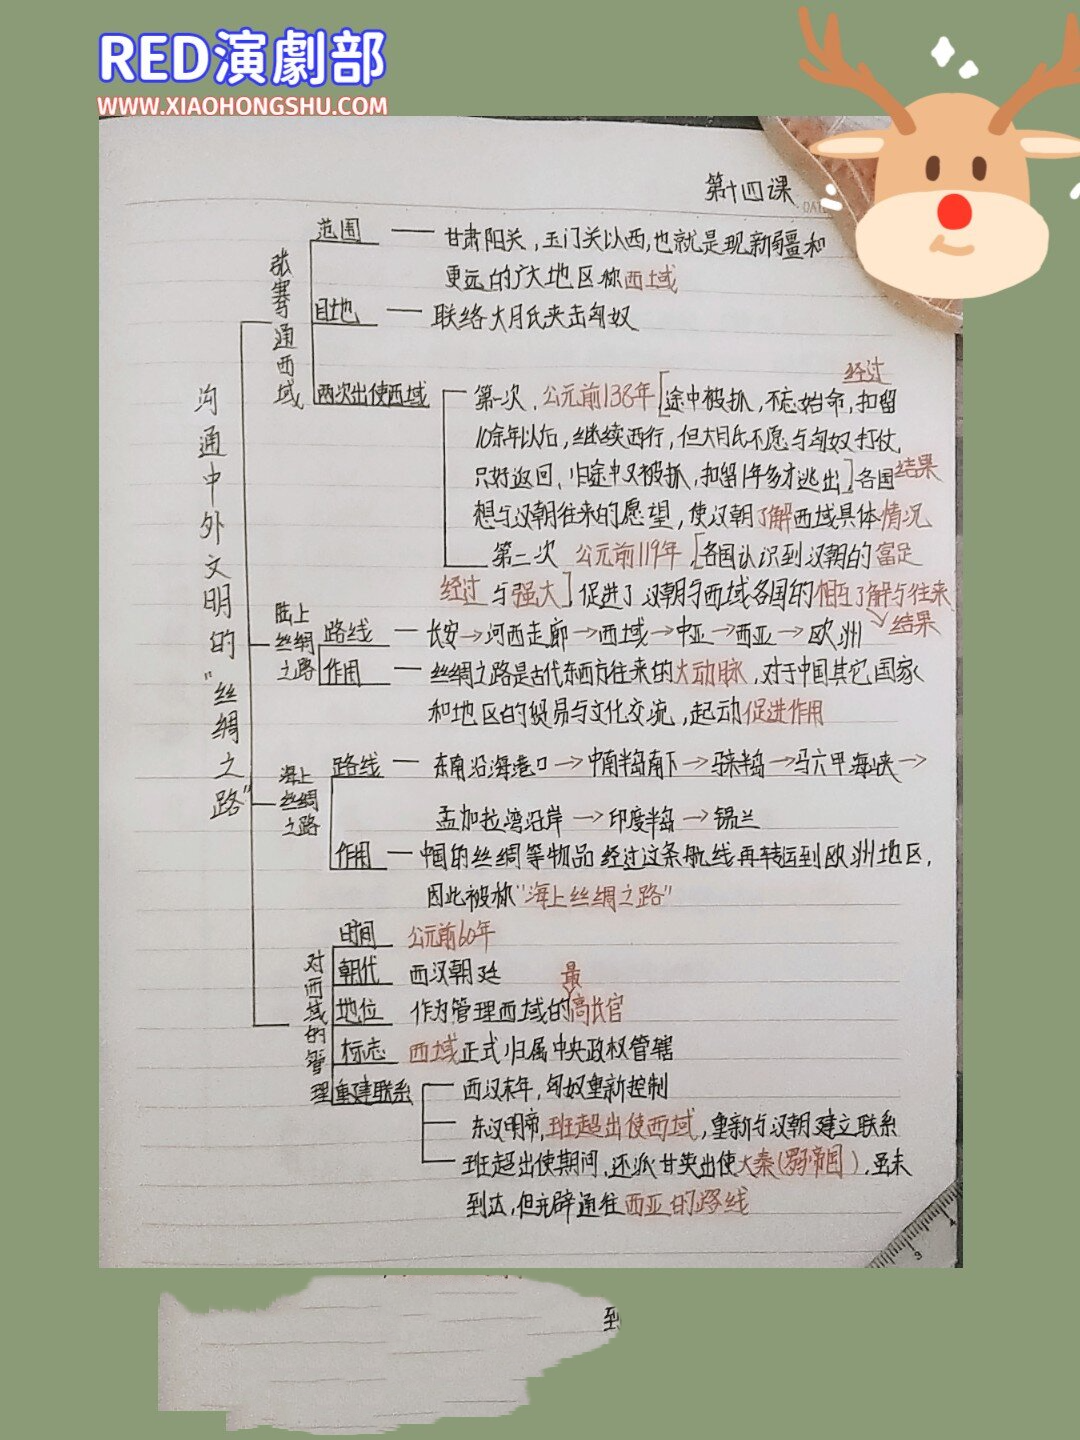 RED演劇部
WWW.XIAOHONGSHU.COM
第十四课
沟通中外文明的"丝绸之路"
张骞通西域
范围 — 甘肃阳关，玉门关以西，也就是现新疆和
更远的广大地区称西域
目地 — 联络大月氏夹击匈奴
两次出使西域
经过
第一次，公元前138年[途中被抓，不忘始命，扣留
10余年以后，继续西行，但大月氏不愿与匈奴打仗，
只好返回，归途中又被抓，扣留1年多才逃出]各国 结果
想与汉朝往来的愿望，使汉朝了解西域具体情况
第二次 公元前119年，[各国认识到汉朝的富足
经过 与强大]促进了汉朝与西域各国的相互了解与往来
结果
陆上丝绸之路
路线 — 长安→河西走廊→西域→中亚→西亚→欧洲
作用 — 丝绸之路是古代东西方往来的大动脉，对于中国其它国家
和地区的贸易与文化交流，起动促进作用
海上丝绸之路
路线 — 东南沿海港口→中南半岛南下→马来半岛→马六甲海峡→
孟加拉湾沿岸→印度半岛→锡兰
作用 — 中国的丝绸等物品经过这条航线再转运到欧洲地区，
因此被称"海上丝绸之路"
对西域的管理
时间 公元前60年
朝代 西汉朝廷
最
地位 作为管理西域的高长官
标志 西域正式归属中央政权管辖
重建联系
西汉末年，匈奴重新控制
东汉明帝，班超出使西域，重新与汉朝建立联系
班超出使期间，还派甘英出使大秦(罗帝国)，虽未
到达，但元辟通往西亚的路线
3
4
到